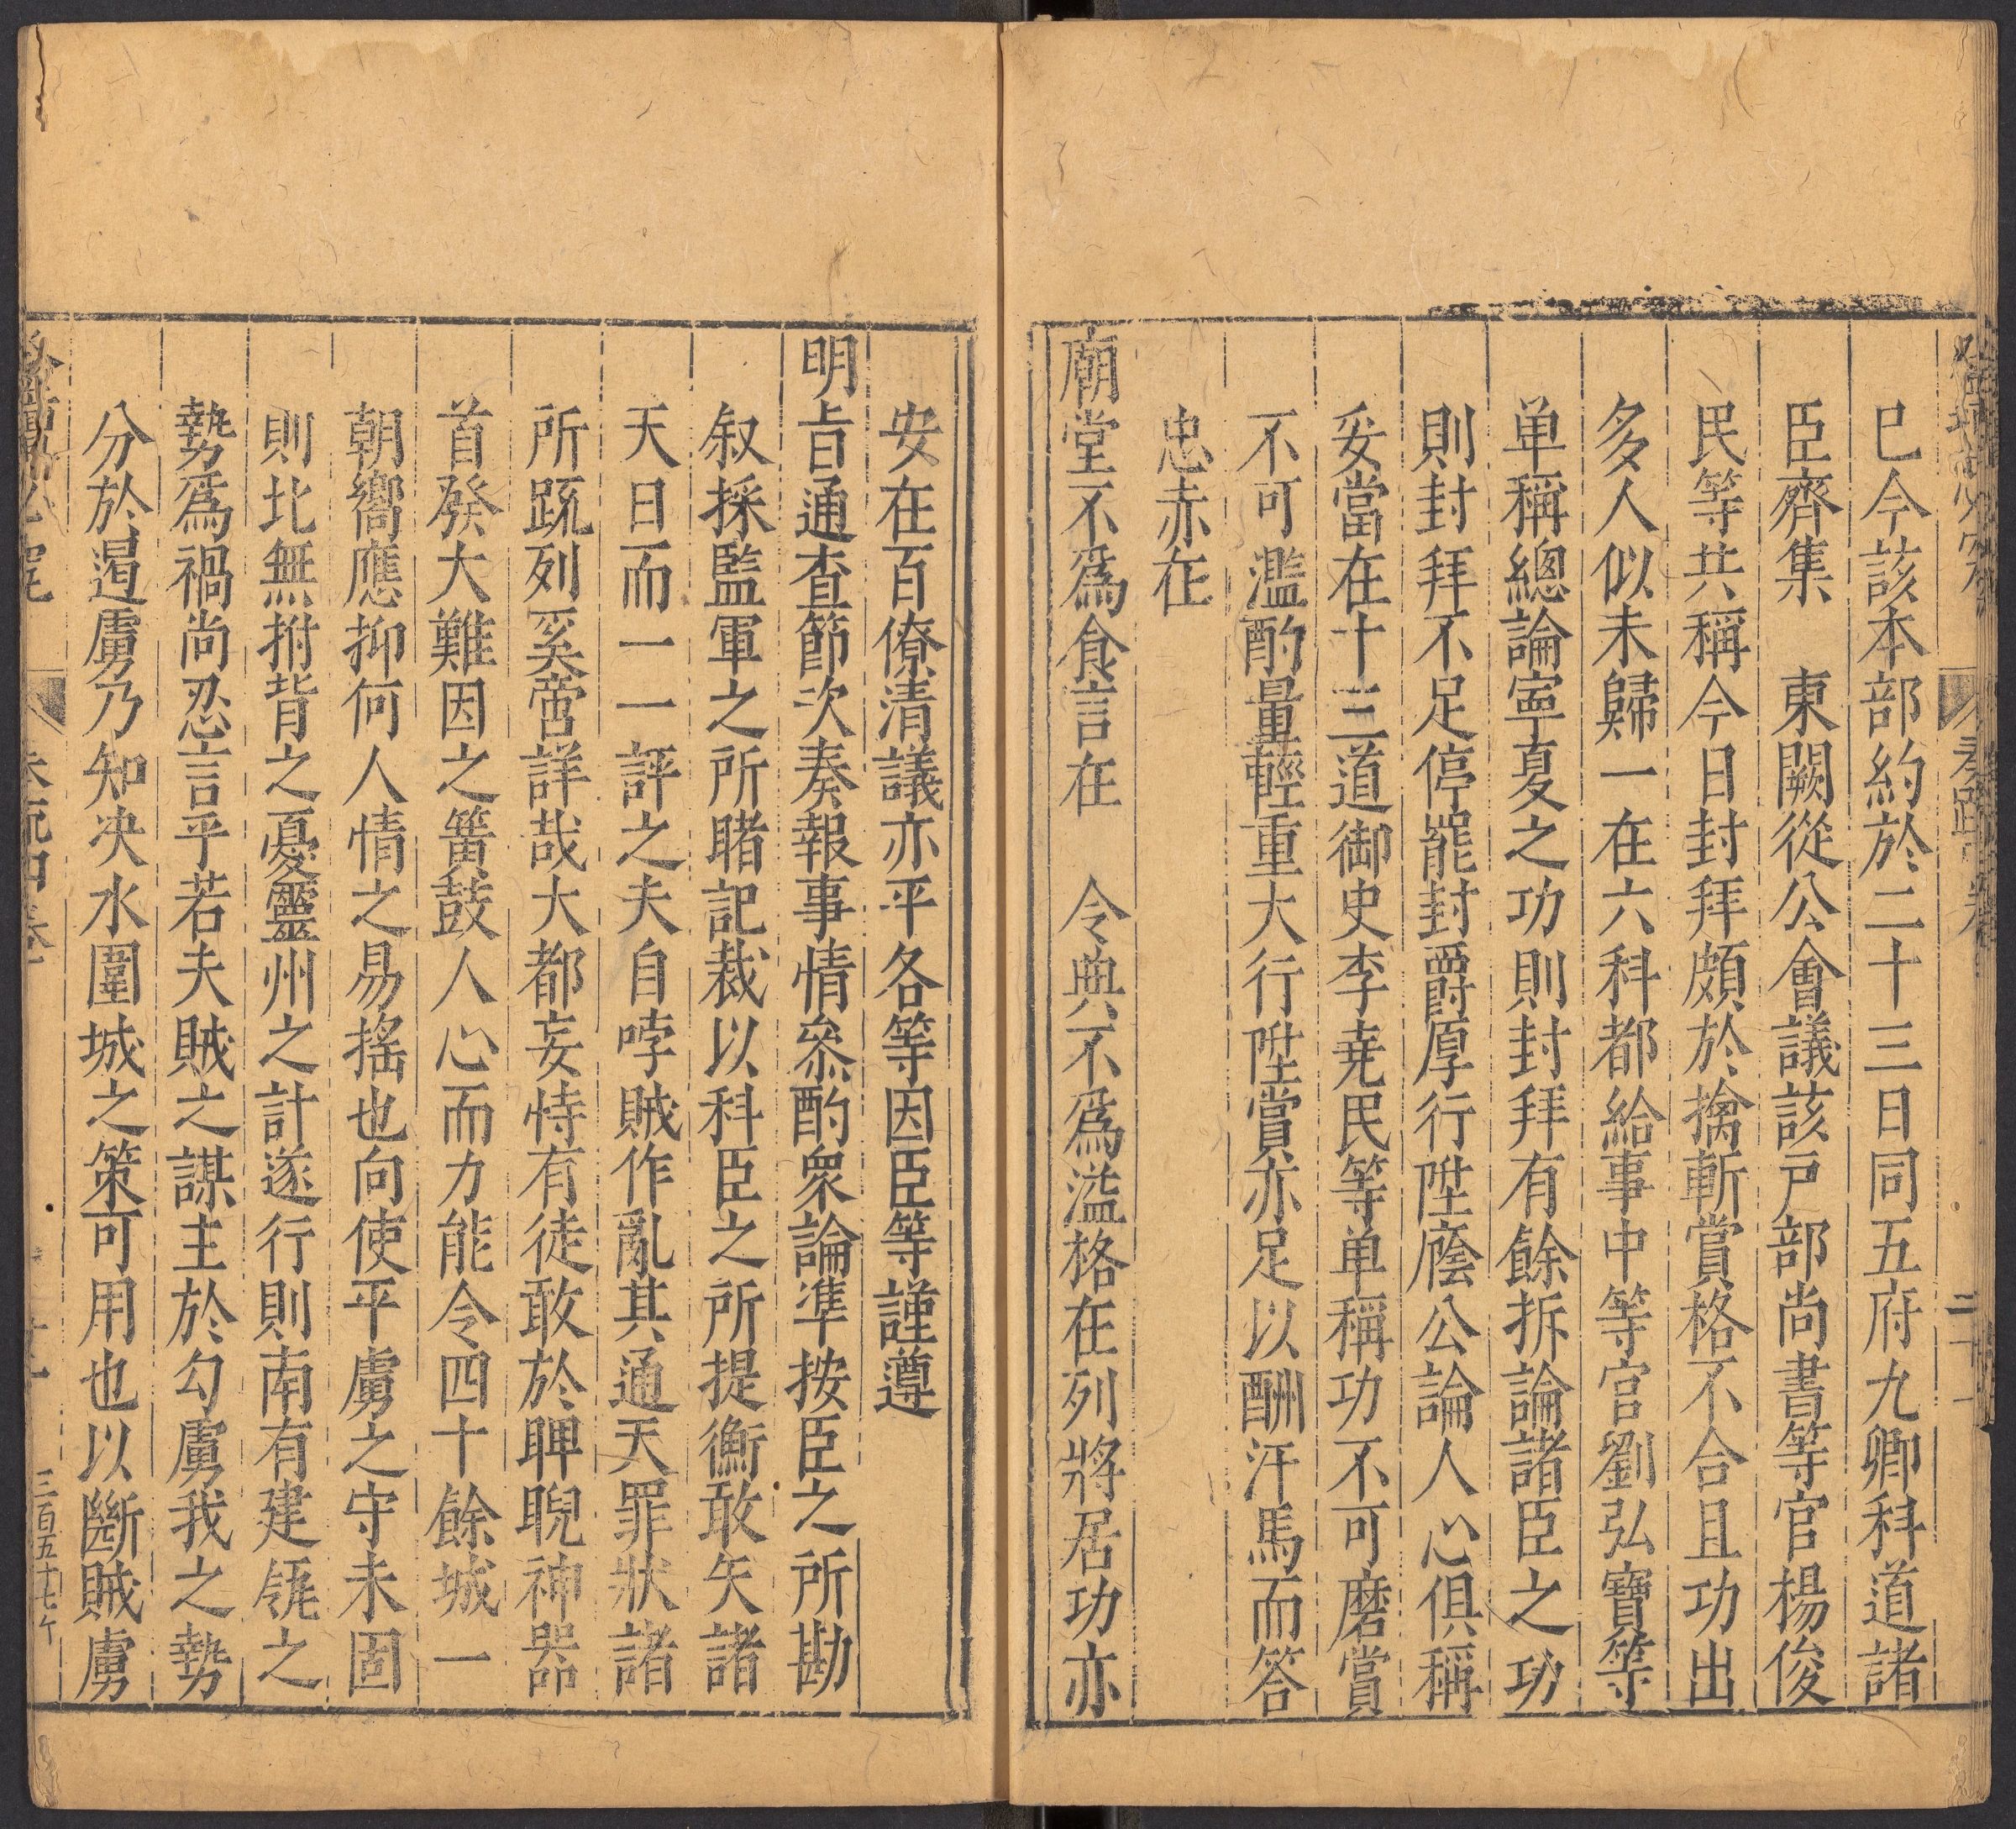 巳今該本部約於二十三日同五府九卿科道諸
臣齊集　東闕從公會議該戸部尚書等官楊俊
民等共稱今日封拜頗於擒斬賞格不合且功出
多人似未歸一在六科都給事中等官劉弘寶等
单稱總論寧夏之功則封拜有餘拆論諸臣之功
則封拜不足停罷封爵厚行陞廕公論人心俱稱
妥當在十三道御史李尭民等单稱功不可磨賞
不可濫酌量輕重大行陞賞亦足以酬汗馬而答
忠赤在
廟堂不爲食言在　令典不爲溢格在列將居功亦
安在百僚清議亦平各等因臣等謹遵
明旨通查節次奏報事情叅酌衆論凖按臣之所勘
叙採監軍之所睹記裁以科臣之所提衡敢矢諸
天日而一一評之夫自哱賊作亂其通天罪狀諸
所䟽列奚啻詳哉大都妄恃有徒敢於睥睨神器
首發大難因之簧鼓人心而力能令四十餘城一
朝嚮應抑何人情之易搖也向使平虜之守未固
則北無拊背之憂靈州之計遂行則南有建瓴之
勢爲禍尚忍言乎若夫賊之謀主於勾虜我之勢
分於遏虜乃知决水圍城之策可用也以斷賊虜
三百五十七ケ